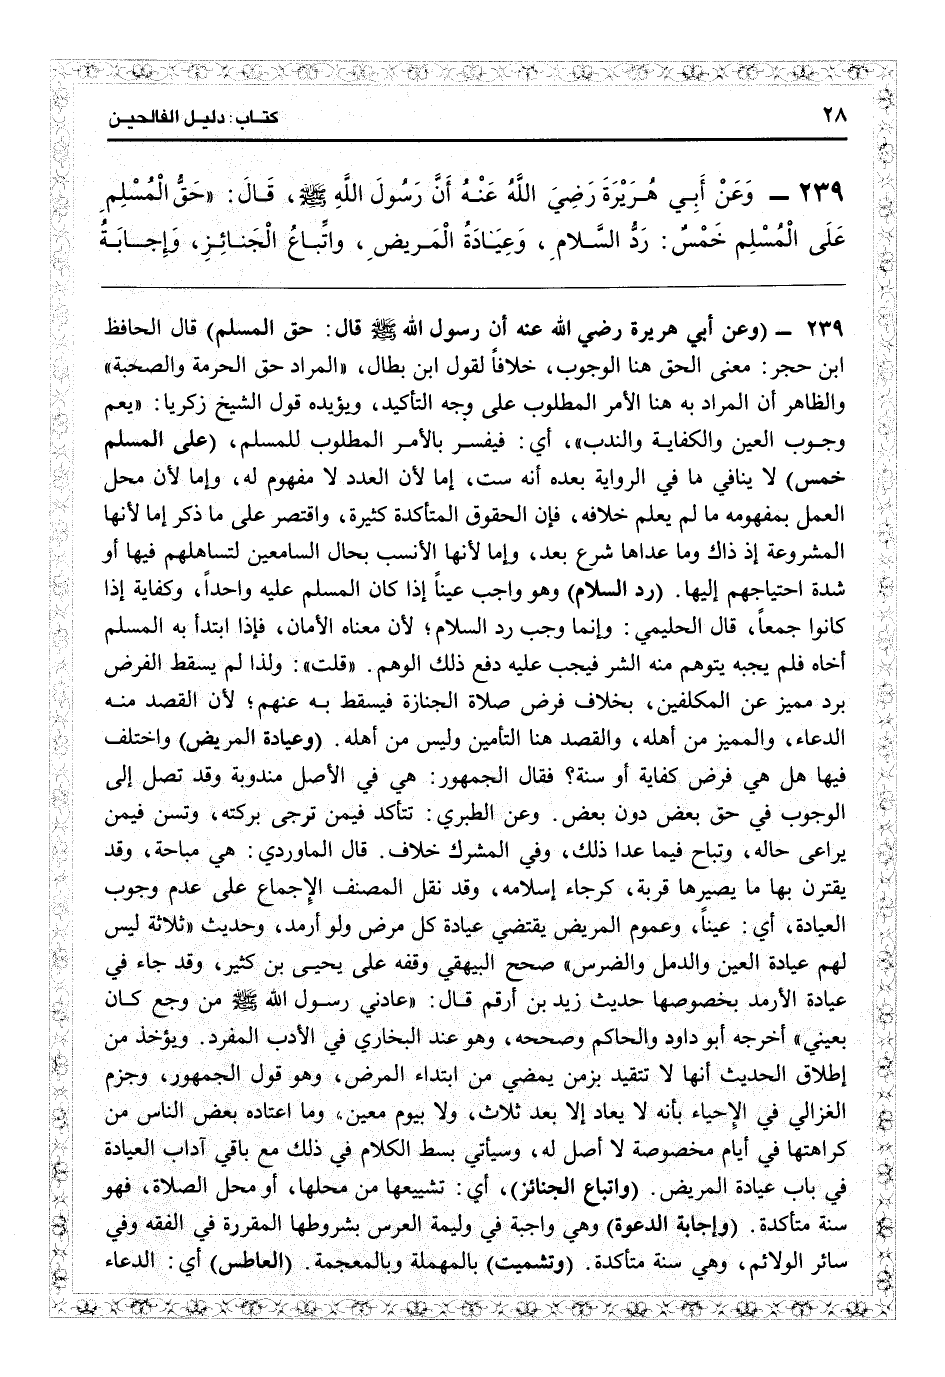 ٢٨
كتاب: دليل الفالحين
٢٣٩ ـ وَعَنْ أَبِي هُرَيْرَةَ رَضِيَ اللَّهُ عَنْهُ أَنَّ رَسُولَ اللَّهِ ﷺ، قَالَ: «حَقُّ الْمُسْلِمِ
عَلَى الْمُسْلِمِ خَمْسٌ: رَدُّ السَّلامِ، وَعِيَادَةُ الْمَرِيضِ، واتِّباعُ الْجَنائِزِ، وَإِجابَةُ
٢٣٩ ـ (وعن أبي هريرة رضي الله عنه أن رسول الله ﷺ قال: حق المسلم) قال الحافظ
ابن حجر: معنى الحق هنا الوجوب، خلافاً لقول ابن بطال، «المراد حق الحرمة والصحبة»
والظاهر أن المراد به هنا الأمر المطلوب على وجه التأكيد، ويؤيده قول الشيخ زكريا: «يعم
وجوب العين والكفاية والندب»، أي: فيفسر بالأمر المطلوب للمسلم، (على المسلم
خمس) لا ينافي ما في الرواية بعده أنه ست، إما لأن العدد لا مفهوم له، وإما لأن محل
العمل بمفهومه ما لم يعلم خلافه، فإن الحقوق المتأكدة كثيرة، واقتصر على ما ذكر إما لأنها
المشروعة إذ ذاك وما عداها شرع بعد، وإما لأنها الأنسب بحال السامعين لتساهلهم فيها أو
شدة احتياجهم إليها. (رد السلام) وهو واجب عيناً إذا كان المسلم عليه واحداً، وكفاية إذا
كانوا جمعاً، قال الحليمي: وإنما وجب رد السلام؛ لأن معناه الأمان، فإذا ابتدأ به المسلم
أخاه فلم يجبه يتوهم منه الشر فيجب عليه دفع ذلك الوهم. «قلت»: ولذا لم يسقط الفرض
برد مميز عن المكلفين، بخلاف فرض صلاة الجنازة فيسقط به عنهم؛ لأن القصد منه
الدعاء، والمميز من أهله، والقصد هنا التأمين وليس من أهله. (وعيادة المريض) واختلف
فيها هل هي فرض كفاية أو سنة؟ فقال الجمهور: هي في الأصل مندوبة وقد تصل إلى
الوجوب في حق بعض دون بعض. وعن الطبري: تتأكد فيمن ترجى بركته، وتسن فيمن
يراعى حاله، وتباح فيما عدا ذلك، وفي المشرك خلاف. قال الماوردي: هي مباحة، وقد
يقترن بها ما يصيرها قربة، كرجاء إسلامه، وقد نقل المصنف الإِجماع على عدم وجوب
العيادة، أي: عيناً، وعموم المريض يقتضي عيادة كل مرض ولو أرمد، وحديث «ثلاثة ليس
لهم عيادة العين والدمل والضرس» صحح البيهقي وقفه على يحيى بن كثير، وقد جاء في
عيادة الأرمد بخصوصها حديث زيد بن أرقم قال: «عادني رسول الله ﷺ من وجع كان
بعيني» أخرجه أبو داود والحاكم وصححه، وهو عند البخاري في الأدب المفرد. ويؤخذ من
إطلاق الحديث أنها لا تتقيد بزمن يمضي من ابتداء المرض، وهو قول الجمهور، وجزم
الغزالي في الإِحياء بأنه لا يعاد إلا بعد ثلاث، ولا بيوم معين، وما اعتاده بعض الناس من
كراهتها في أيام مخصوصة لا أصل له، وسيأتي بسط الكلام في ذلك مع باقي آداب العيادة
في باب عيادة المريض. (واتباع الجنائز)، أي: تشييعها من محلها، أو محل الصلاة، فهو
سنة متأكدة. (وإجابة الدعوة) وهي واجبة في وليمة العرس بشروطها المقررة في الفقه وفي
سائر الولائم، وهي سنة متأكدة. (وتشميت) بالمهملة وبالمعجمة. (العاطس) أي: الدعاء